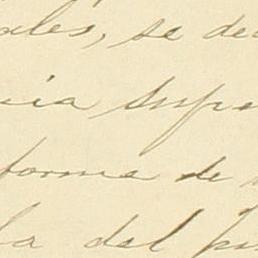 ales, se de
cia Supe
forma de
la del pu